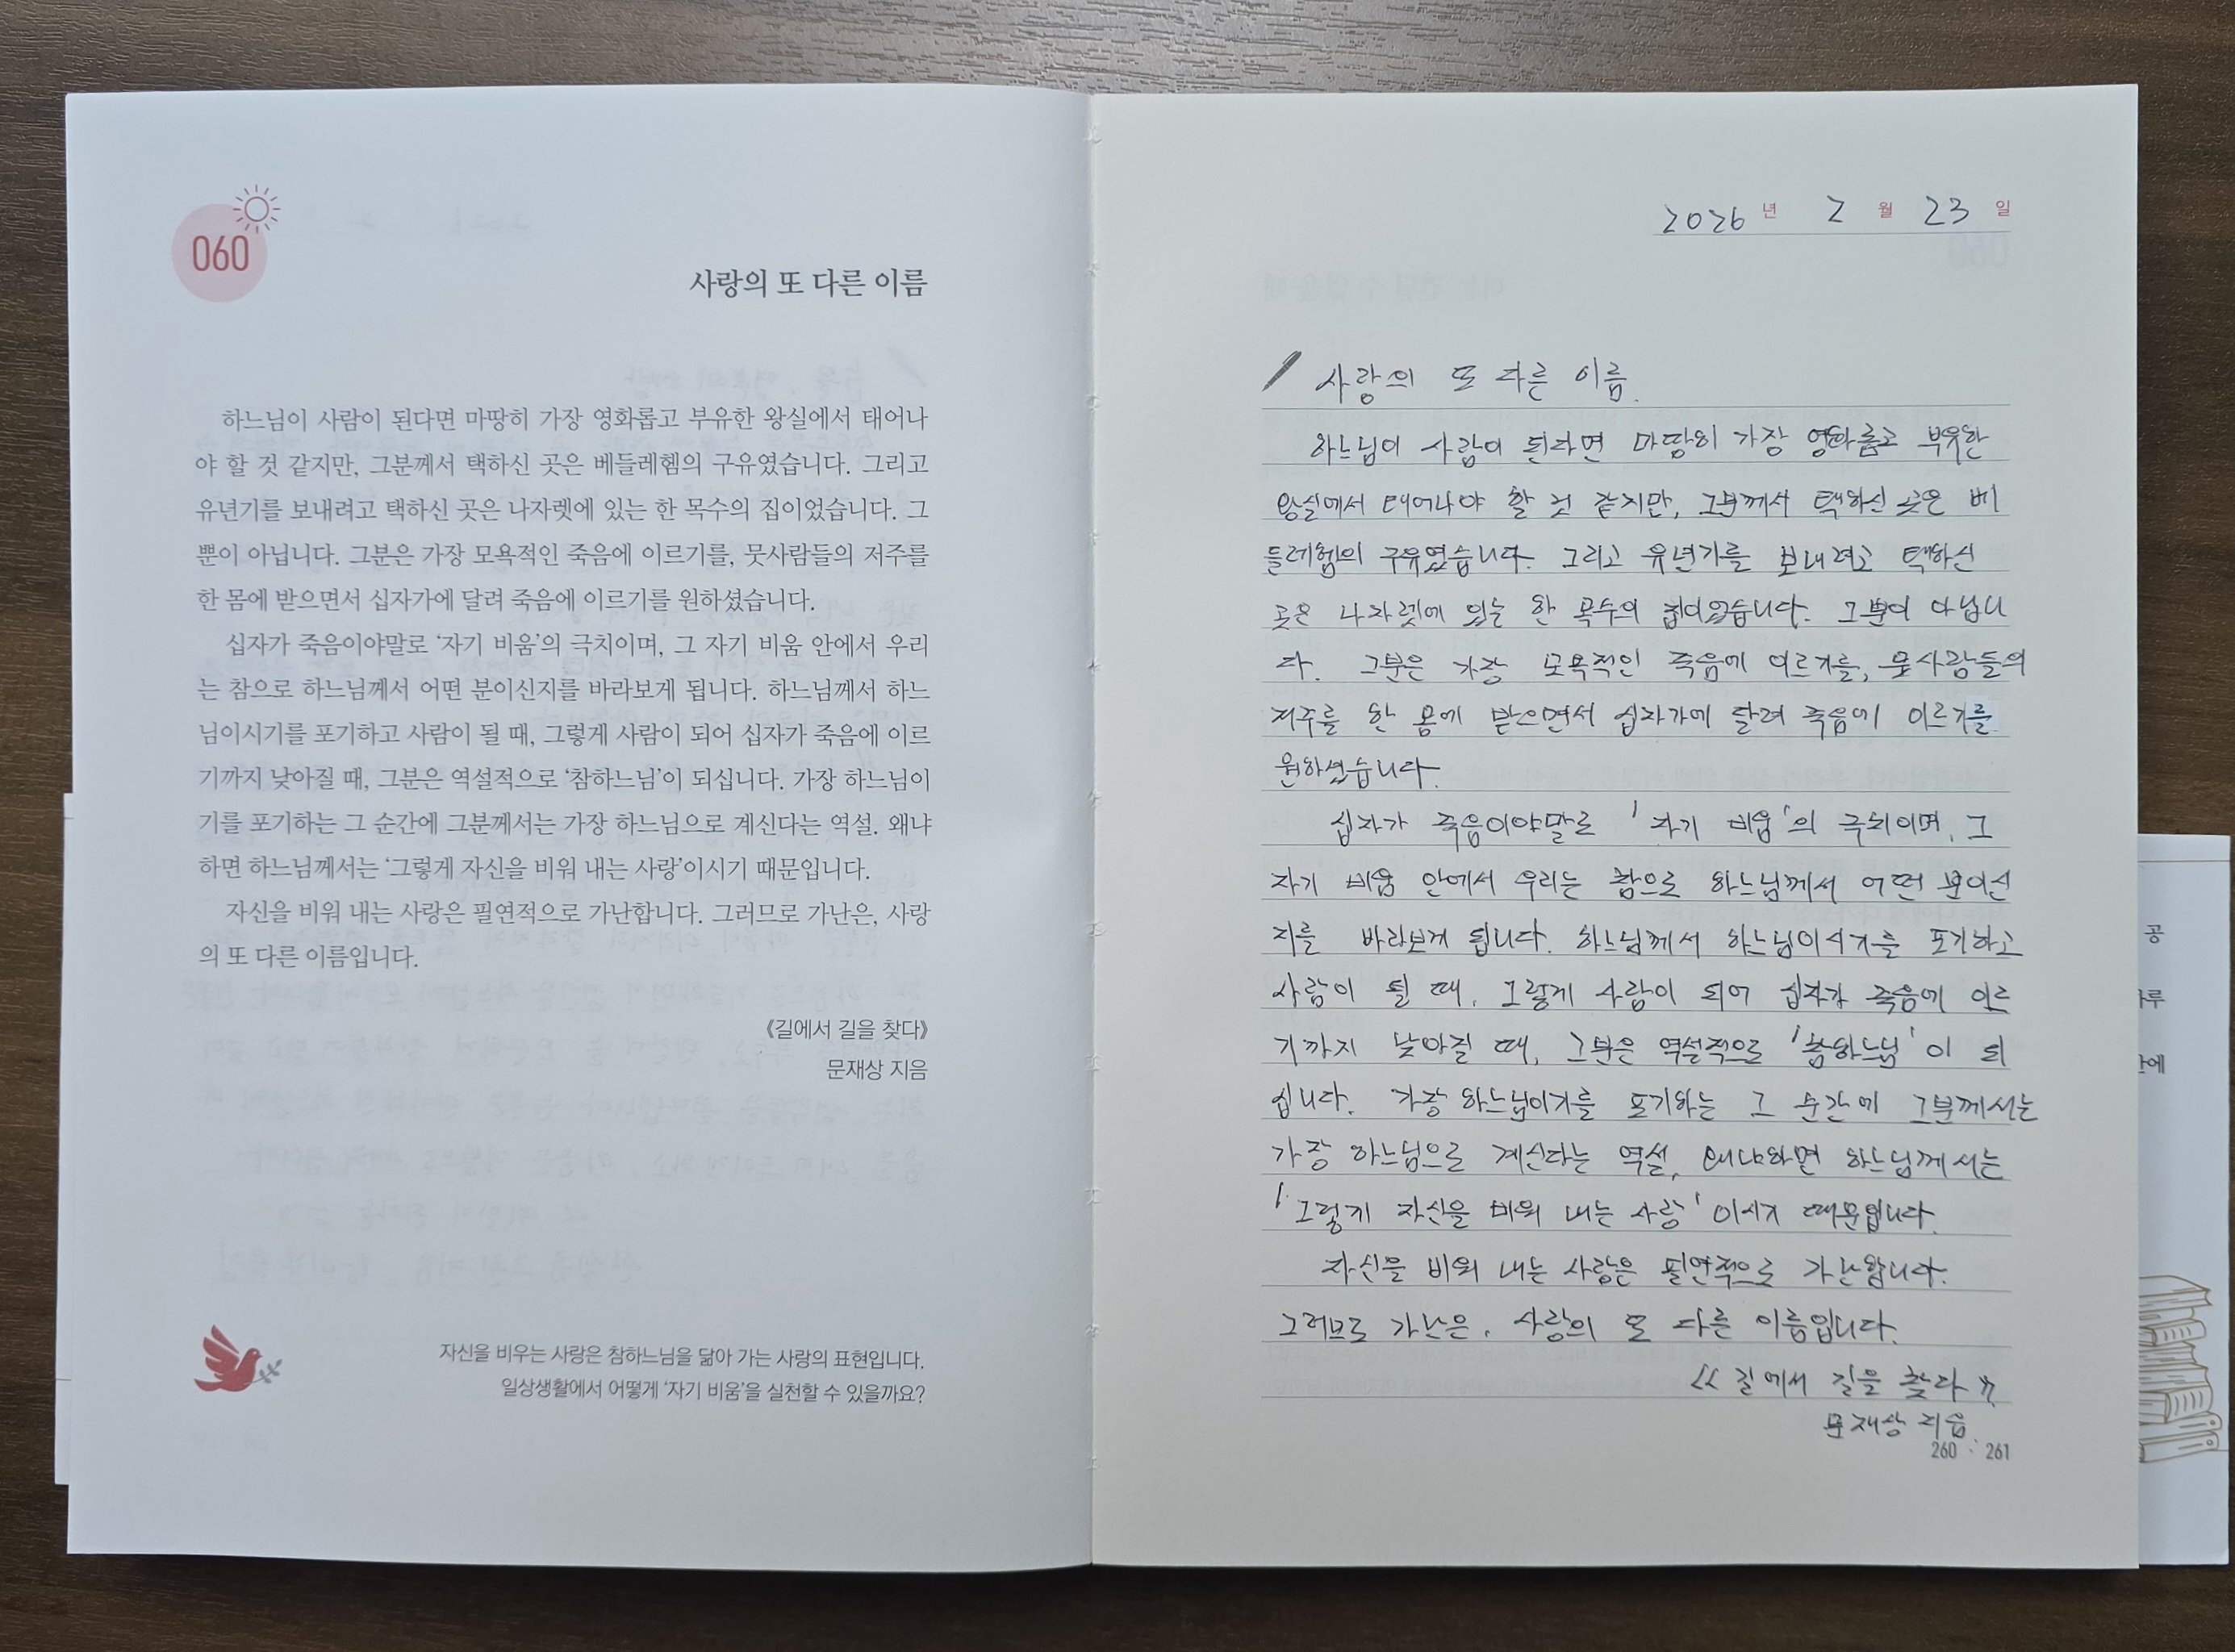 060
사랑의 또 다른 이름
하느님이 사람이 된다면 마땅히 가장 영화롭고 부유한 왕실에서 태어나
야 할 것 같지만, 그분께서 택하신 곳은 베들레헴의 구유였습니다. 그리고
유년기를 보내려고 택하신 곳은 나자렛에 있는 한 목수의 집이었습니다. 그
뿐이 아닙니다. 그분은 가장 모욕적인 죽음에 이르기를, 뭇사람들의 저주를
한 몸에 받으면서 십자가에 달려 죽음에 이르기를 원하셨습니다.
십자가 죽음이야말로 ‘자기 비움’의 극치이며, 그 자기 비움 안에서 우리
는 참으로 하느님께서 어떤 분이신지를 바라보게 됩니다. 하느님께서 하느
님이시기를 포기하고 사람이 될 때, 그렇게 사람이 되어 십자가 죽음에 이르
기까지 낮아질 때, 그분은 역설적으로 ‘참하느님’이 되십니다. 가장 하느님이
기를 포기하는 그 순간에 그분께서는 가장 하느님으로 계신다는 역설. 왜냐
하면 하느님께서는 ‘그렇게 자신을 비워 내는 사랑’이시기 때문입니다.
자신을 비워 내는 사랑은 필연적으로 가난합니다. 그러므로 가난은, 사랑
의 또 다른 이름입니다.
《길에서 길을 찾다》
문재상 지음
자신을 비우는 사랑은 참하느님을 닮아 가는 사랑의 표현입니다.
일상생활에서 어떻게 ‘자기 비움’을 실천할 수 있을까요?
2026 년 2 월 23 일
사랑의 또 다른 이름.
하느님이 사람이 된다면 마땅히 가장 영화롭고 부유한
왕실에서 태어나야 할 것 같지만, 그분께서 택하신 곳은 베
들레헴의 구유였습니다. 그리고 유년기를 보내려고 택하신
곳은 나자렛에 있는 한 목수의 집이었습니다. 그뿐이 아닙니
다. 그분은 가장 모욕적인 죽음에 이르기를, 뭇사람들의
저주를 한 몸에 받으면서 십자가에 달려 죽음에 이르기를
원하셨습니다.
십자가 죽음이야말로 '자기 비움'의 극치이며, 그
자기 비움 안에서 우리는 참으로 하느님께서 어떤 분이신
지를 바라보게 됩니다. 하느님께서 하느님이시기를 포기하고
사람이 될 때, 그렇게 사람이 되어 십자가 죽음에 이르
기까지 낮아질 때, 그분은 역설적으로 '참하느님'이 되
십니다. 가장 하느님이기를 포기하는 그 순간에 그분께서는
가장 하느님으로 계신다는 역설, 왜냐하면 하느님께서는
'그렇게 자신을 비워 내는 사랑'이시기 때문입니다.
자신을 비워 내는 사랑은 필연적으로 가난합니다.
그러므로 가난은, 사랑의 또 다른 이름입니다.
<<길에서 길을 찾다>>
문재상 지음.
260 : 261
공
에